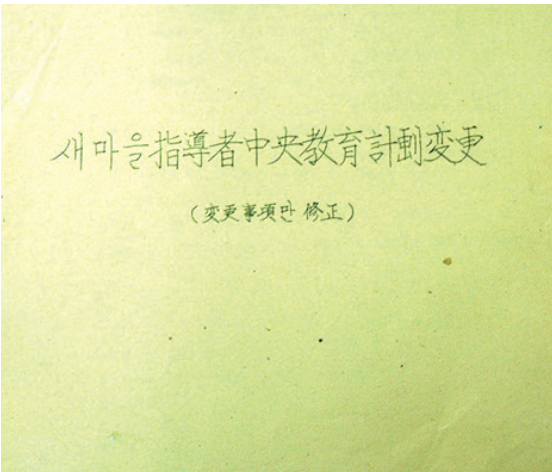 새마을指導者中央敎育計劃変更
(変更事項만 修正)